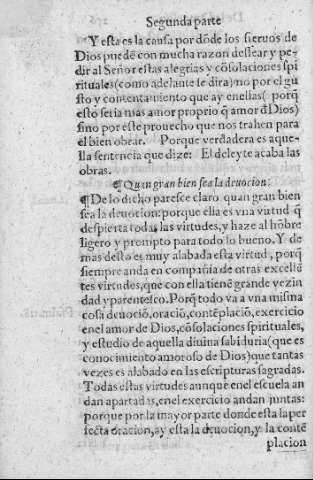 Segunda parte
Y esta es la causa por dōde los sieruos de
Dios puedē con mucha razon dessear y pe-
dir al Señor estas alegrias y cōsolaciones spi
rituales (como adelante se dira) no por el gu
sto y contentamiento que ay enellas (porq̄
esto seria mas amor proprio q̄ amor đ Dios)
sino por este prouecho que nos trahen para
el bien obrar. Porque verdadera es aque-
lla sentencia que dize: El deleyte acaba las
obras.
¶ Quan gran bien sea la deuocion:
¶ De lo dicho paresce claro quan gran bien
sea la deuocion: porque ella es vna virtud q̄
despierta todas las virtudes, y haze al hōbre
ligero y prompto para todo lo bueno. Y de
mas desto es muy alabada esta virtud, porq̄
siempre anda en compañia de otras excellē
tes virtudes, que con ella tienē grande vezin
dad y parentesco. Porq̄ todo va a vna misma
cosa deuociō, oraciō, contēplaciō, exercicio
en el amor de Dios, cōsolaciones spirituales,
y estudio de aquella diuina sabiduria (que es
conocimiento amoroso de Dios) que tantas
vezes es alabado en las escripturas sagradas.
Todas estas virtudes aunque enel escuela an
dan apartadas, enel exercicio andan juntas:
porque por la mayor parte donde esta la per
fecta oracion, ay esta la deuocion, y la contē
placion